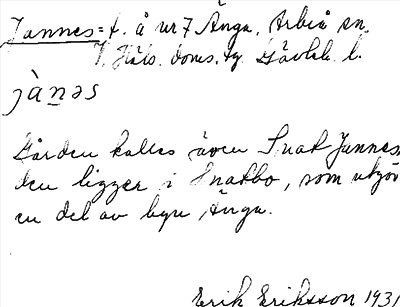 Jannes = t. å nr 7 Änga, Arbrå sn.
V. Häls. doms. Gävleb. l.
jànəs
Gården kallas även Snak Jannes
den ligger i Snakbo, som utgör
en del av byn Änga.
Erik Eriksson 1931